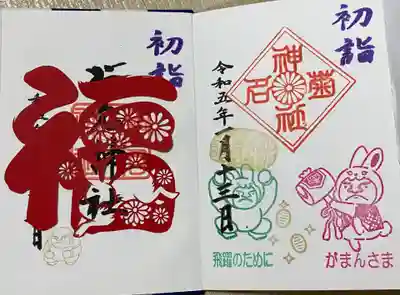 初詣
菊名
神社
令和五年一月十三日
飛躍のために
がまんさま
初詣
福
神社